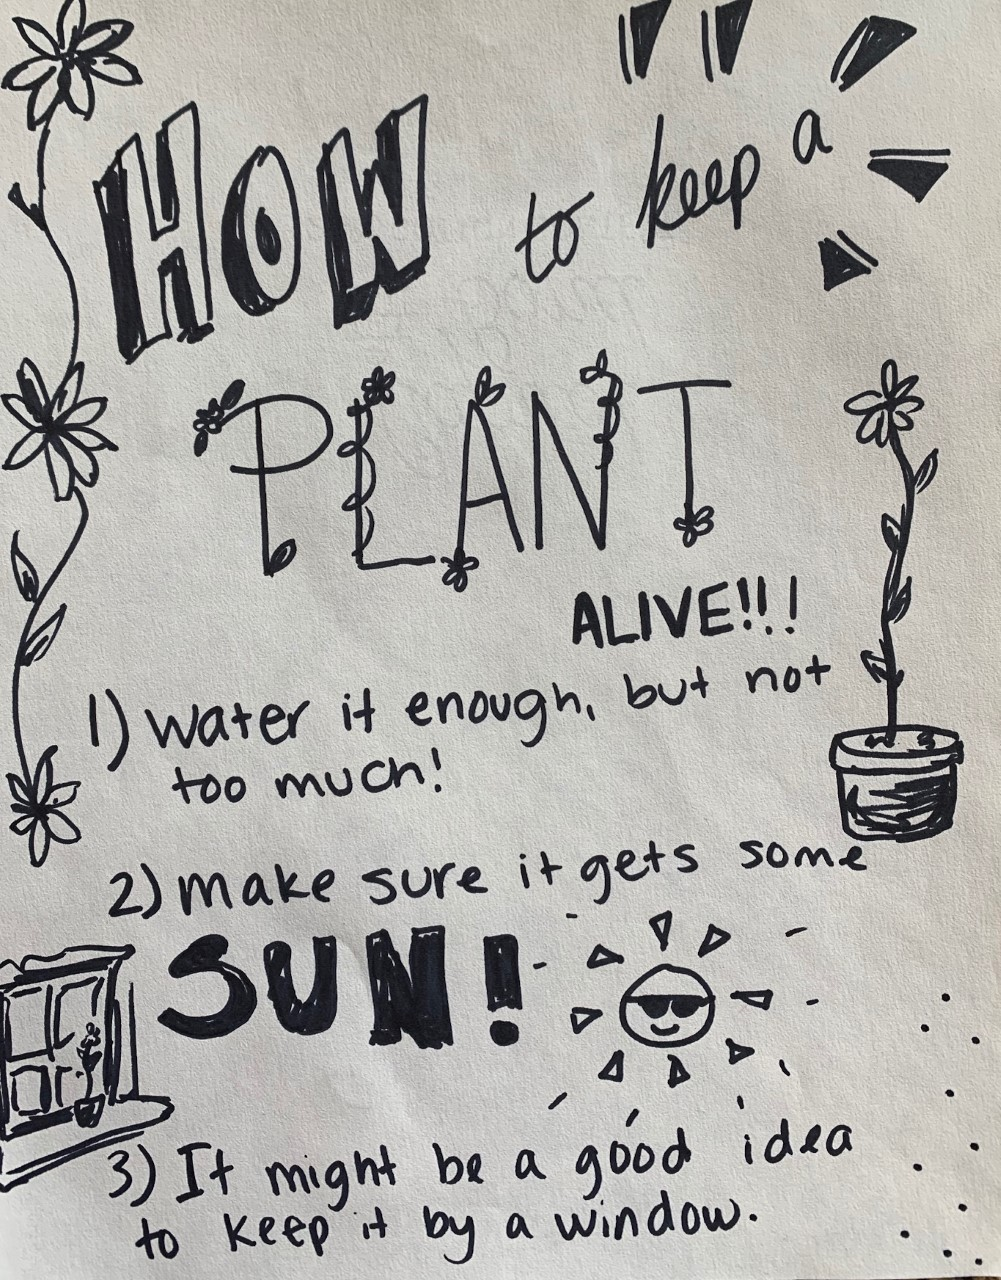 HOW to keep a
PLANT
ALIVE!!!
1) water it enough, but not
too much!
2) make sure it gets some
SUN!
3) It might be a good idea
to keep it by a window.